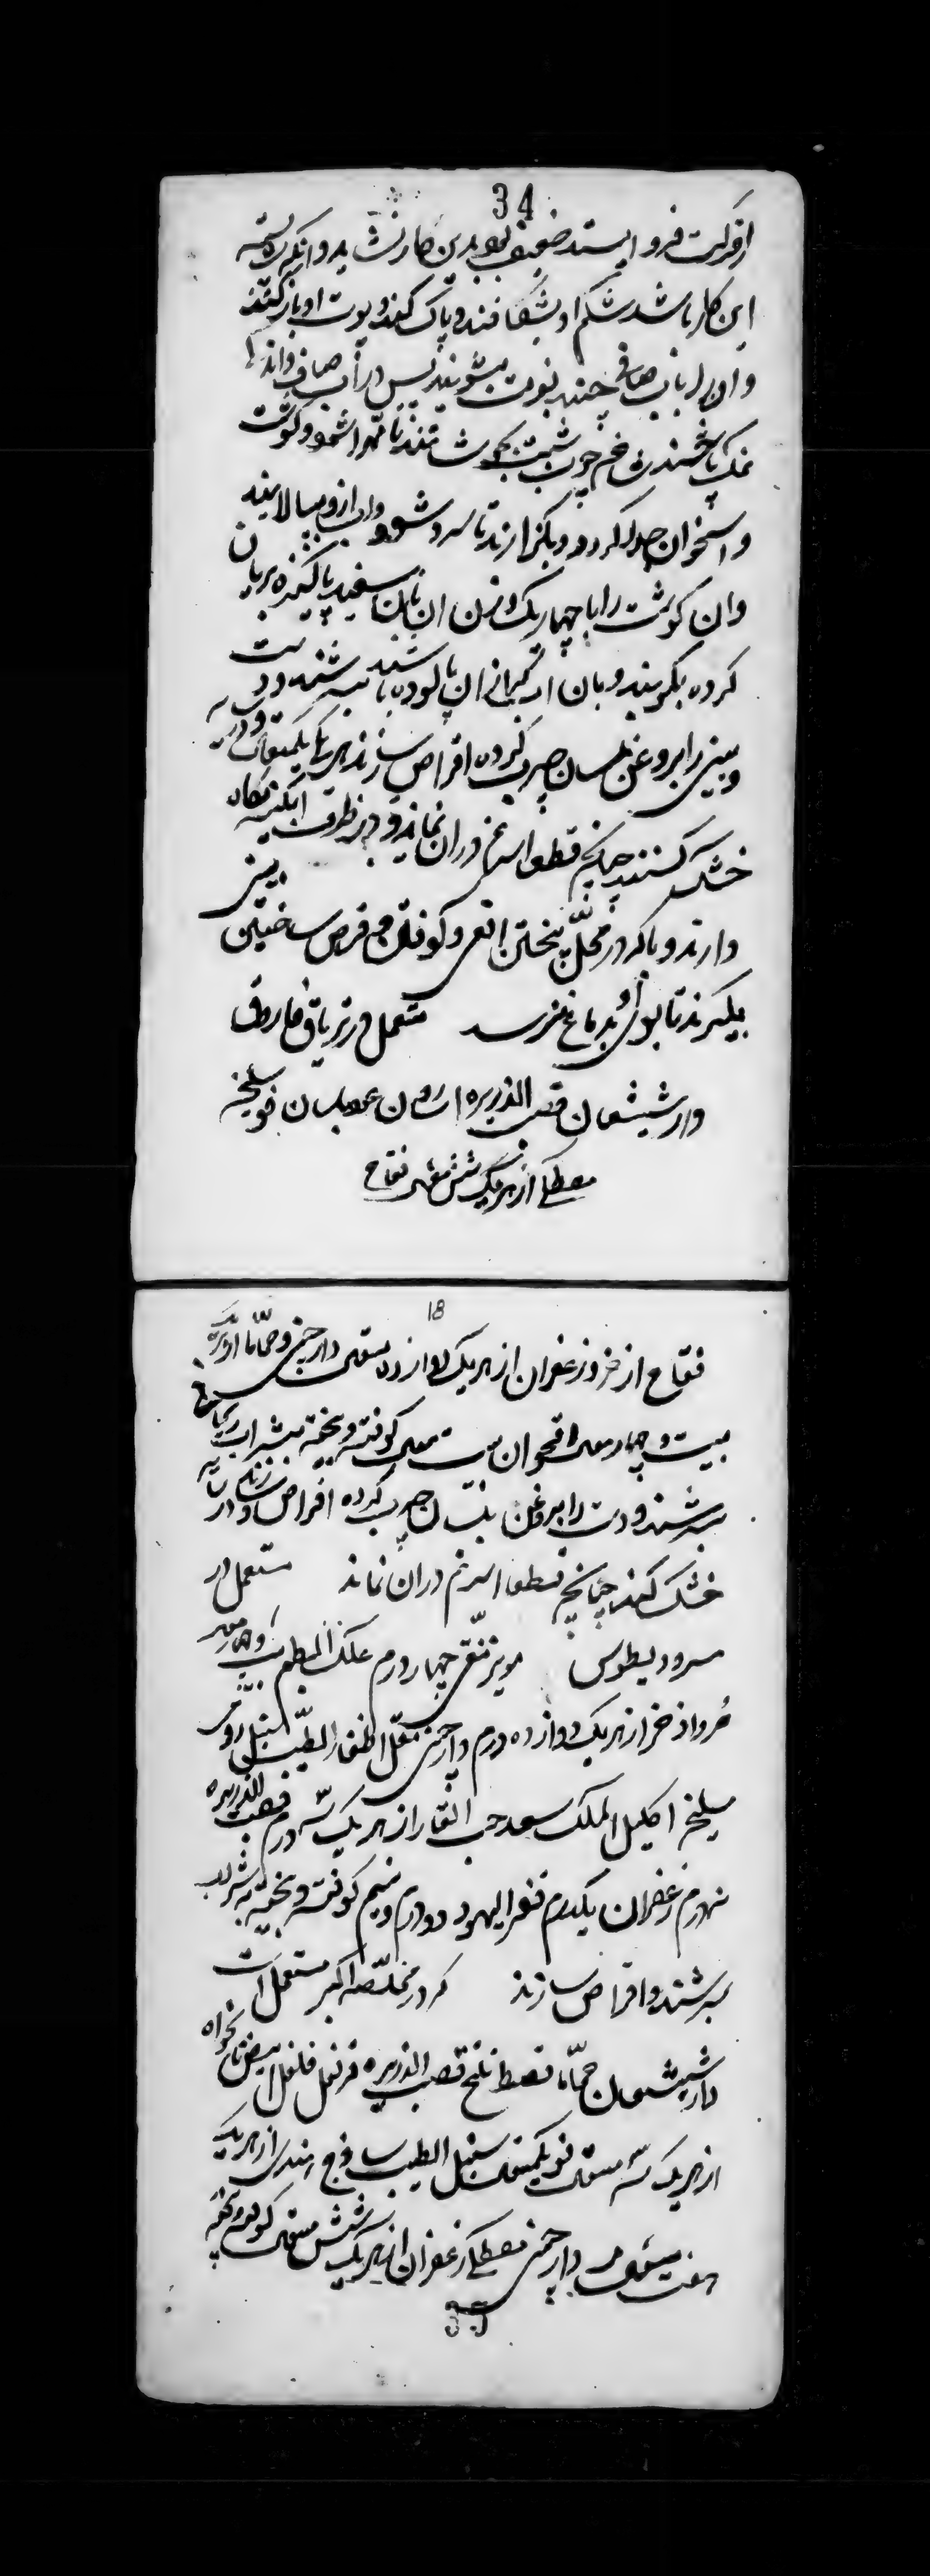 34
از حرکت فرو ایستد ضعیف بود بدین کار نشاید و آنکه شایسته
این کار باشد شکم او بشکافند و پاک کنند و پوست او باز کنند
و آن را بآب صافی چند نوبت بشویند پس در آب صاف و اندک
نمک باشند تخم چوب شبت بجوشانند تا مهرا شود و گوشت
و استخوان جدا گردد و بگذارند تا سرد شود و آب ازو بپالایند
و آن گوشت را با چهار یک وزن آن نان سفید پاکیزه بریان
کرده بگیرند و بآن آب که از آن پالوده باشند بسرشند و دست
و بینی را بروغن بلسان چرب کرده اقراص سازند هر یکی یکمثقال و در سایه
خشک کنند چنانچه قطعا اثر نم در آن نماند و در ظرف آبگینه نگاه
دارند و باید که در محل پختن افعی و کوفتن و قرص ساختن بینی
بگیرند تا بوی او بدماغ نرسد مستعمل در تریاق فاروق
دارشیشعان قصب الذریره اسارون عود بلسان فو سلیخه
مصطکی از هر یک شش مثقال فقاح
18
فقاح اذخر و زعفران از هر یک دوازده مثقال دارچینی و حماما از هر یک
بیست و چهار مثقال اقحوان بیست مثقال کوفته و بیخته بشراب ریحانی
بسرشند و دست را بروغن بلسان چرب کرده اقراص سازند و در سایه
خشک کنند چنانچه قطعا اثر نم در آن نماند مستعمل در
مثرودیطوس مویز منقی چهار درم علک البطم بیست و چهار درم
مر و اذخر از هر یک دوازده درم دارچینی مقل اظفار الطیب سنبل رومی
سلیخه اکلیل الملک سعد حب الغار از هر یک سه درم قصب الذریره
نه درم زعفران یکدرم قفر الیهود دو درم و نیم کوفته و بیخته بشراب
بسرشند و اقراص سازند که در مخلصه اکبر مستعمل است
دارشیشعان حماما قسط تلخ قصب الذریره قرنفل فلفل ابیض نانخواه
از هر یک سه مثقال فو یکمثقال سنبل الطیب ساذج هندی از هر یک
هفت مثقال دارچینی مصطکی زعفران از هر یک شش مثقال کوفته و بیخته
35